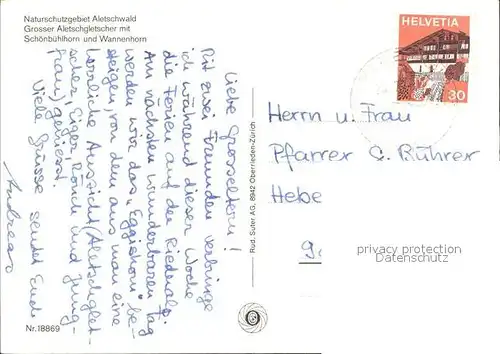 Naturschutzgebiet Aletschwald
Grosser Aletschgletscher mit
Schönbühlhorn und Wannenhorn
Liebe Grosseltern!
Mit zwei Freunden verbringe
ich während dieser Woche
die Ferien auf der Riederalp.
Am nächsten wunderbaren Tag
werden wir das "Eggishorn" be-
steigen, von dem aus man eine
herrliche Aussicht (Aletschglet-
scher, Eiger Mönch und Jung-
frau) geniesst.
Viele Grüsse sendet Euch
Andreas
Nr. 18869
Rud. Suter AG, 8942 Oberrieden-Zürich
HELVETIA
30
Herrn u. Frau
Pfarrer C. Rührer
Hebe
9
privacy protection
Datenschutz